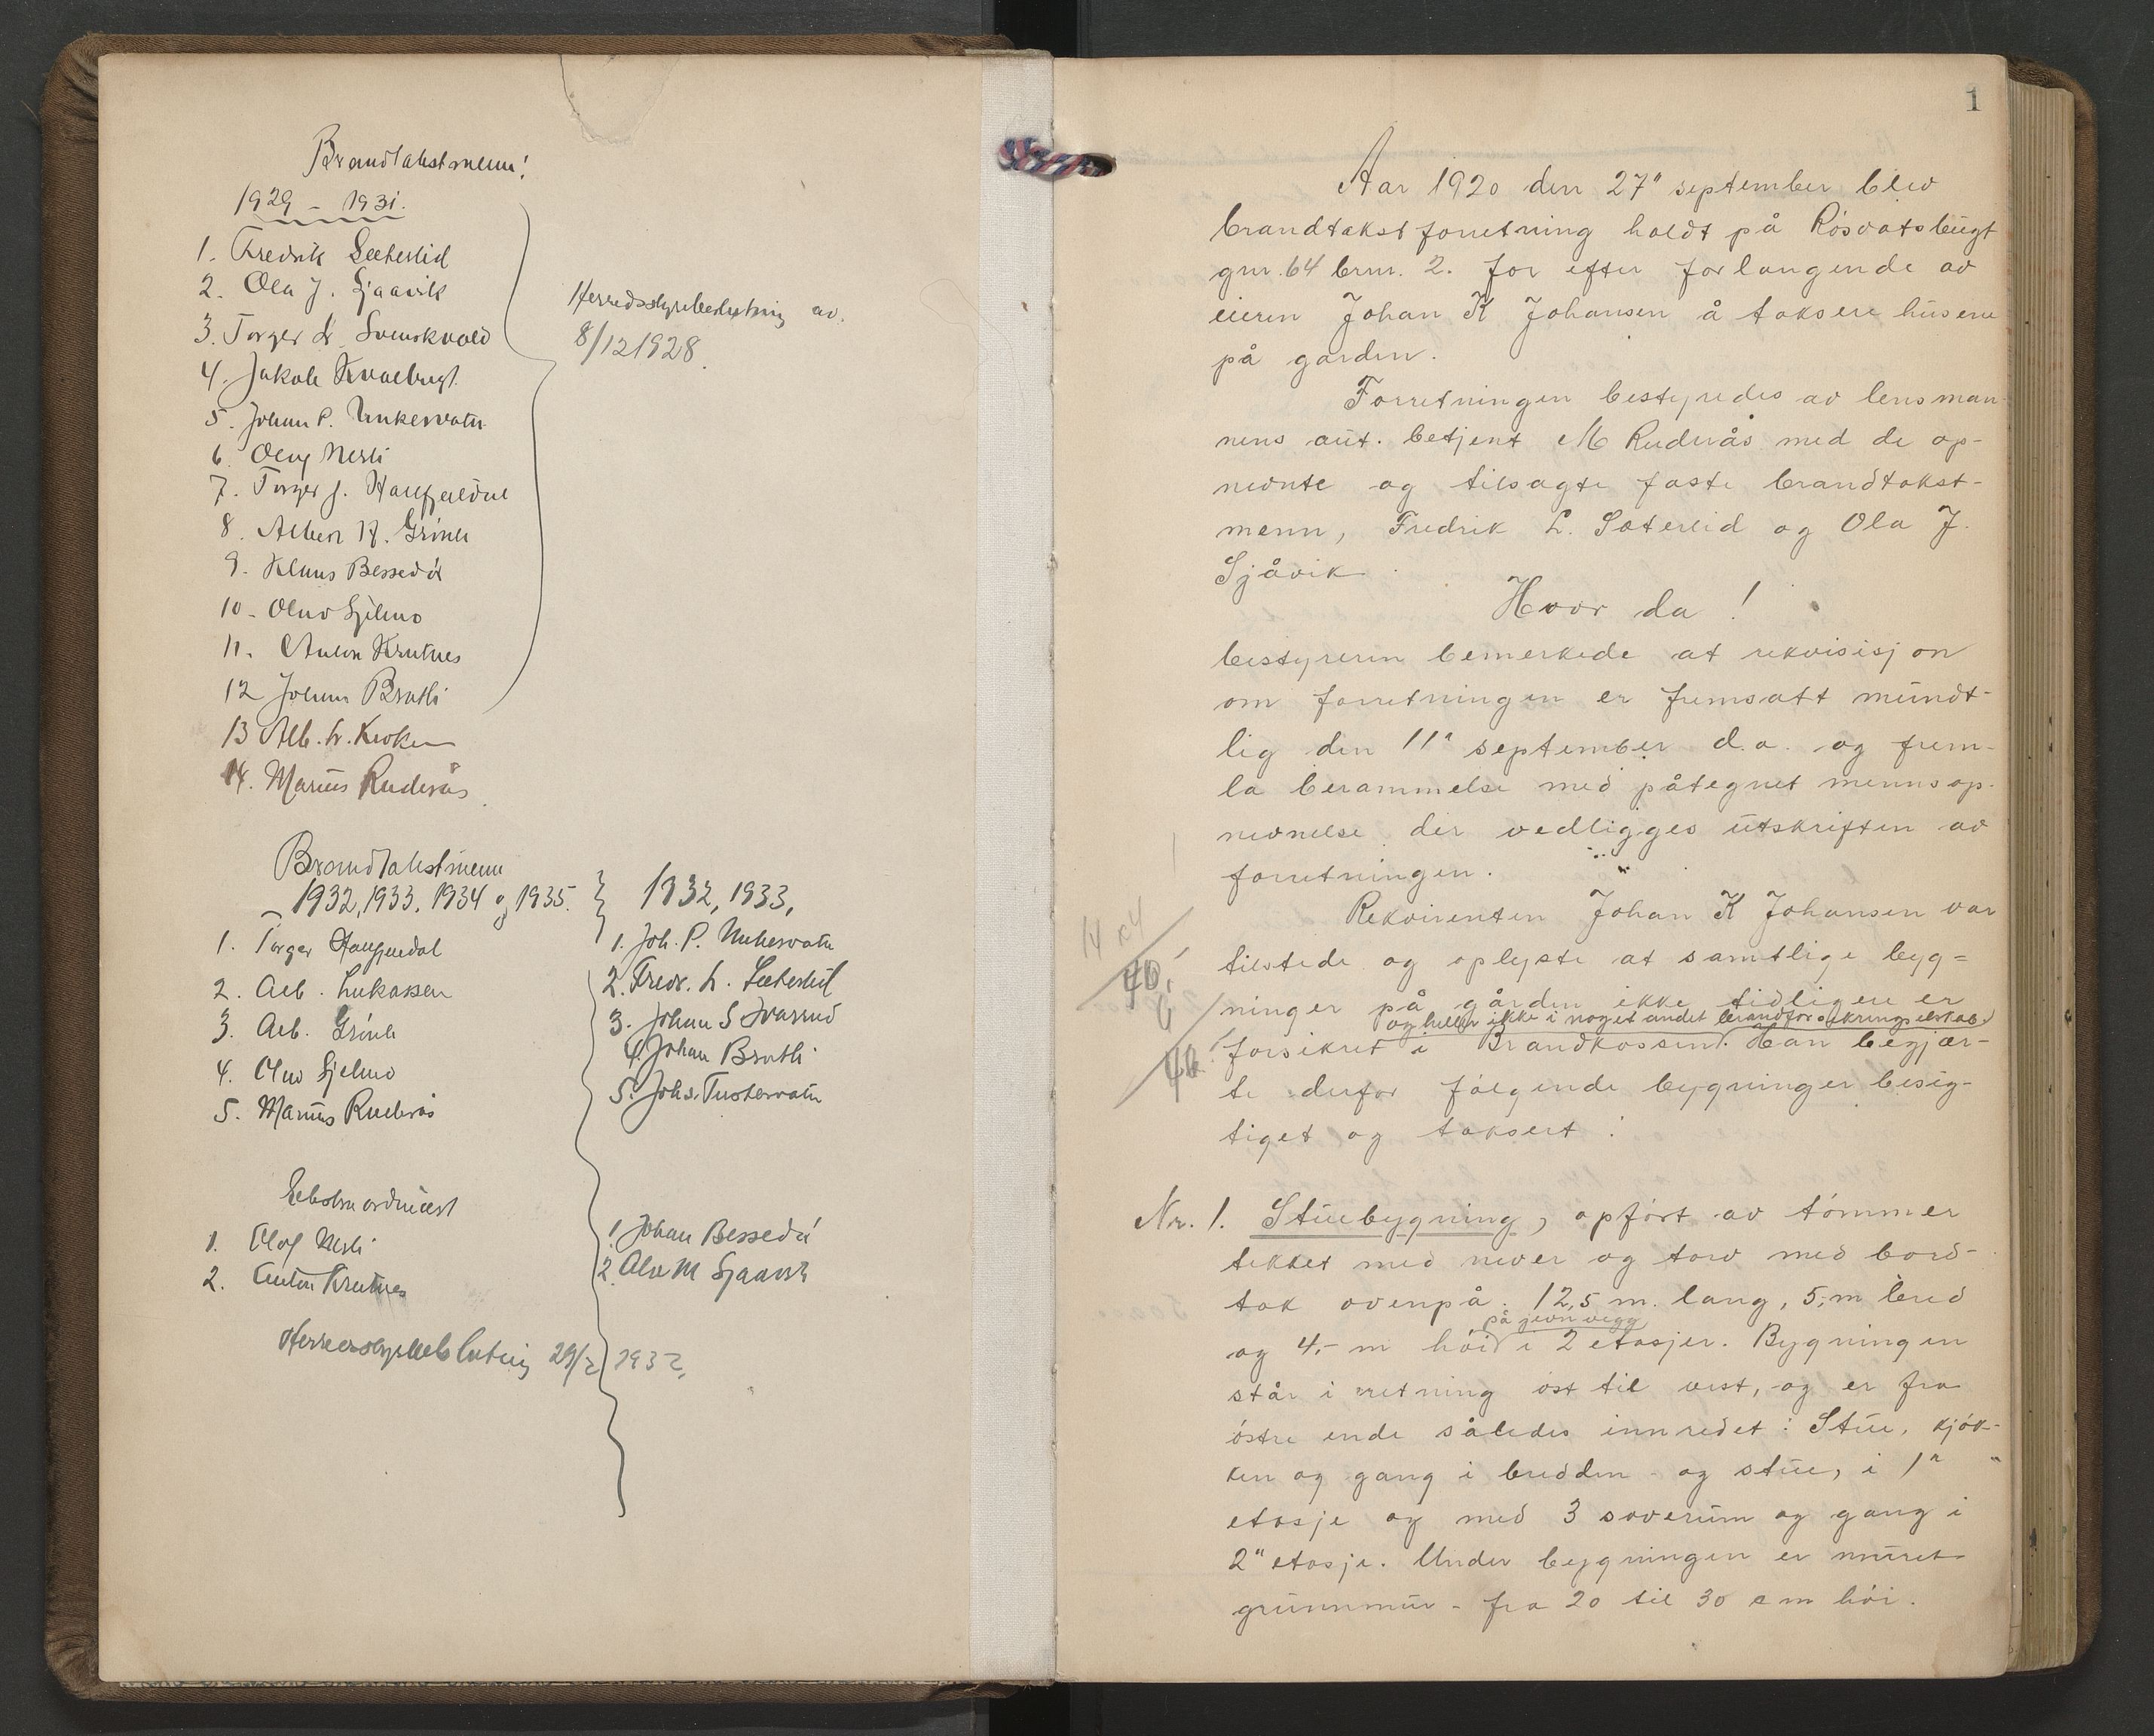 Brandtakstmenn!
1929 - 1931.
1. Fredrik Sæterlid
2. Ola J. Sjaavik
3. Torger L. Svenskvold
4. Jakob
5. Johan P. Unkervatn
6. Oluf Nerli
7. Torger J. Haugfjeldal
8. Albert H. Grönli
9. Klaus Bessedör
10. Olav Gjelmo
11. Anton Krutnes
12 Johan Bratli
13 Alb. L. Kroken
14. Marius Ruderås
Herredsstyrebeslutning av.
8/12 1928.
Brandtakstmenn
1932, 1933, 1934 og 1935.
1. Torger
2. Alb. Lukassen
3. Alb. Grönli
4. Olav Gjelmo
5. Marius Ruderås
1932, 1933,
1. Joh. P. Unkervatn
2. Fredr. L. Sæterlid
3. Johan S
4. Johan Bratli
5. Johs. Tustervatn
Ekstraordinært
1. Oluf Nerli
2. Anton Krutnes
1. Johan Bessedör
2. Ola M Sjaavik
Herredsstyrebeslutning 29/2 1932.
1
Aar 1920 den 27" september blev
brandtakstforretning holdt på Rösvatsbugt
gnr. 64 brnr. 2. for efter forlangende av
eieren Johan K Johansen å taksere husene
på garden.
Forretningen bestyredes av lensman-
nens aut. betjent M Ruderås med de op-
nevnte og tilsagte faste brandtakst-
menn, Fredrik L. Sæterlid og Ola J.
Sjåvik
Hvor da!
bestyreren bemerkede at rekvisisjon
om forretningen er fremsatt mündt-
lig den 11" september d.a. og frem-
la berammelse med påtegnet mennsop-
nevnelse der vedligges utskriften av
forretningen.
Rekvirenten Johan K Johansen var
tilstede og oplyste at samtlige byg=
ninger på gården ikke tidligere er
og heller ikke i noget andet brandforsikringselskab
forsikret i Brandkassen. Han begjær-
te derfor følgende bygninger besig-
tiget og taksert:
14 x 4
40,-
6
46
Nr. 1. Stuebygning, opført av tømmer
tekket med never og torv med bord-
tak ovenpå. 12,5 m. lang, 5,- m bred
på jevn vegg
og 4,- m høi i 2 etasjer. Bygningen
står i retning øst til vest, og er fra
østre ende således innredet: Stue, kjøk-
ken og gang i bredden og stue, i 1"
etasje og med 3 soverum og gang i
2" etasje. Under bygningen er muret
grunnmur - fra 20 til 30 cm høi.